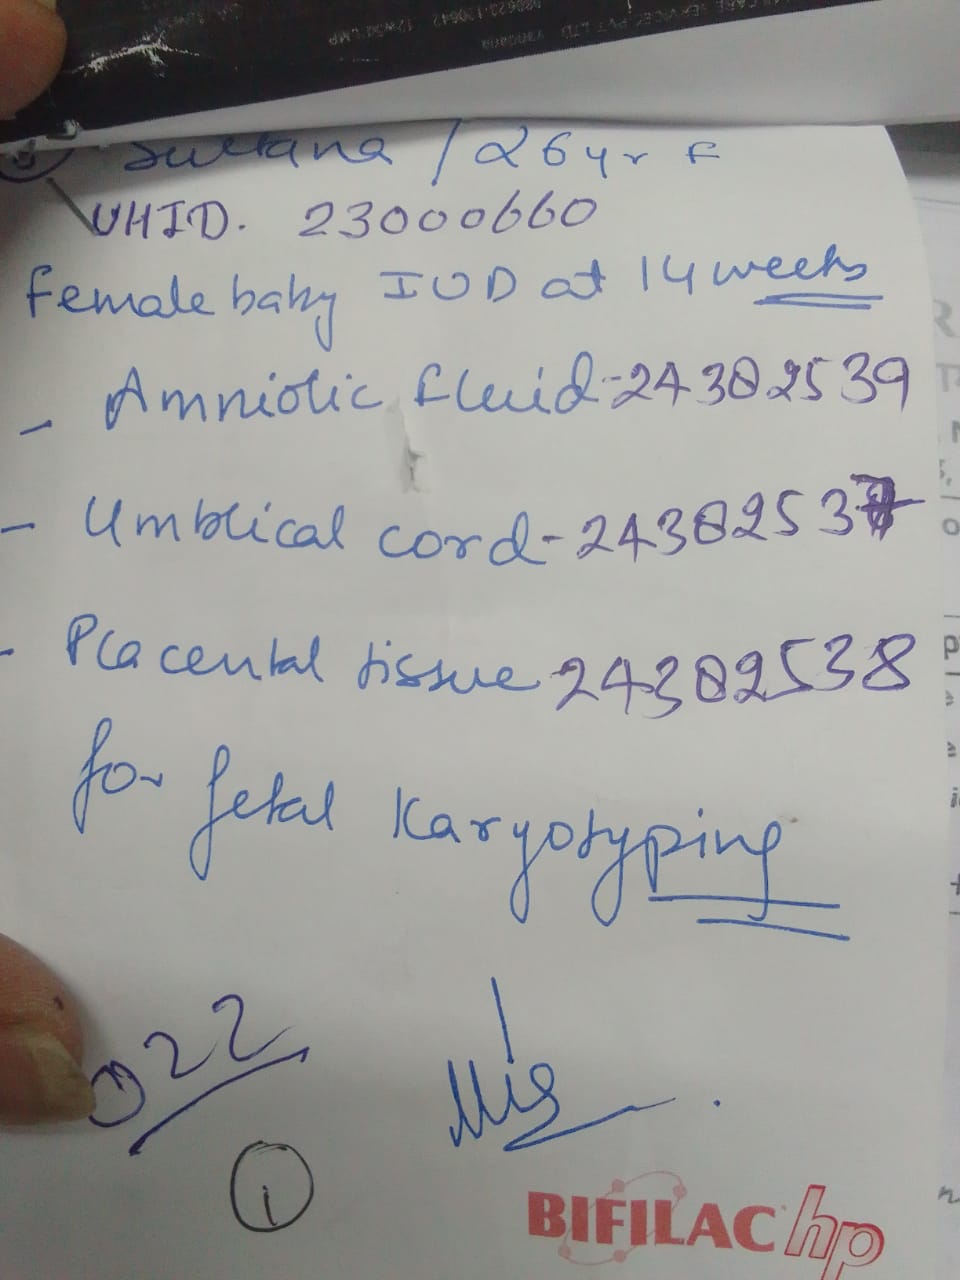 Sultana / 26 yr F
UHID. 23000660
female baby IUD at 14 weeks
- Amniotic fluid - 24302539
- Umblical cord - 24302537
- Placental tissue 24302538
for fetal Karyotyping
22
1
BIFILAC hp